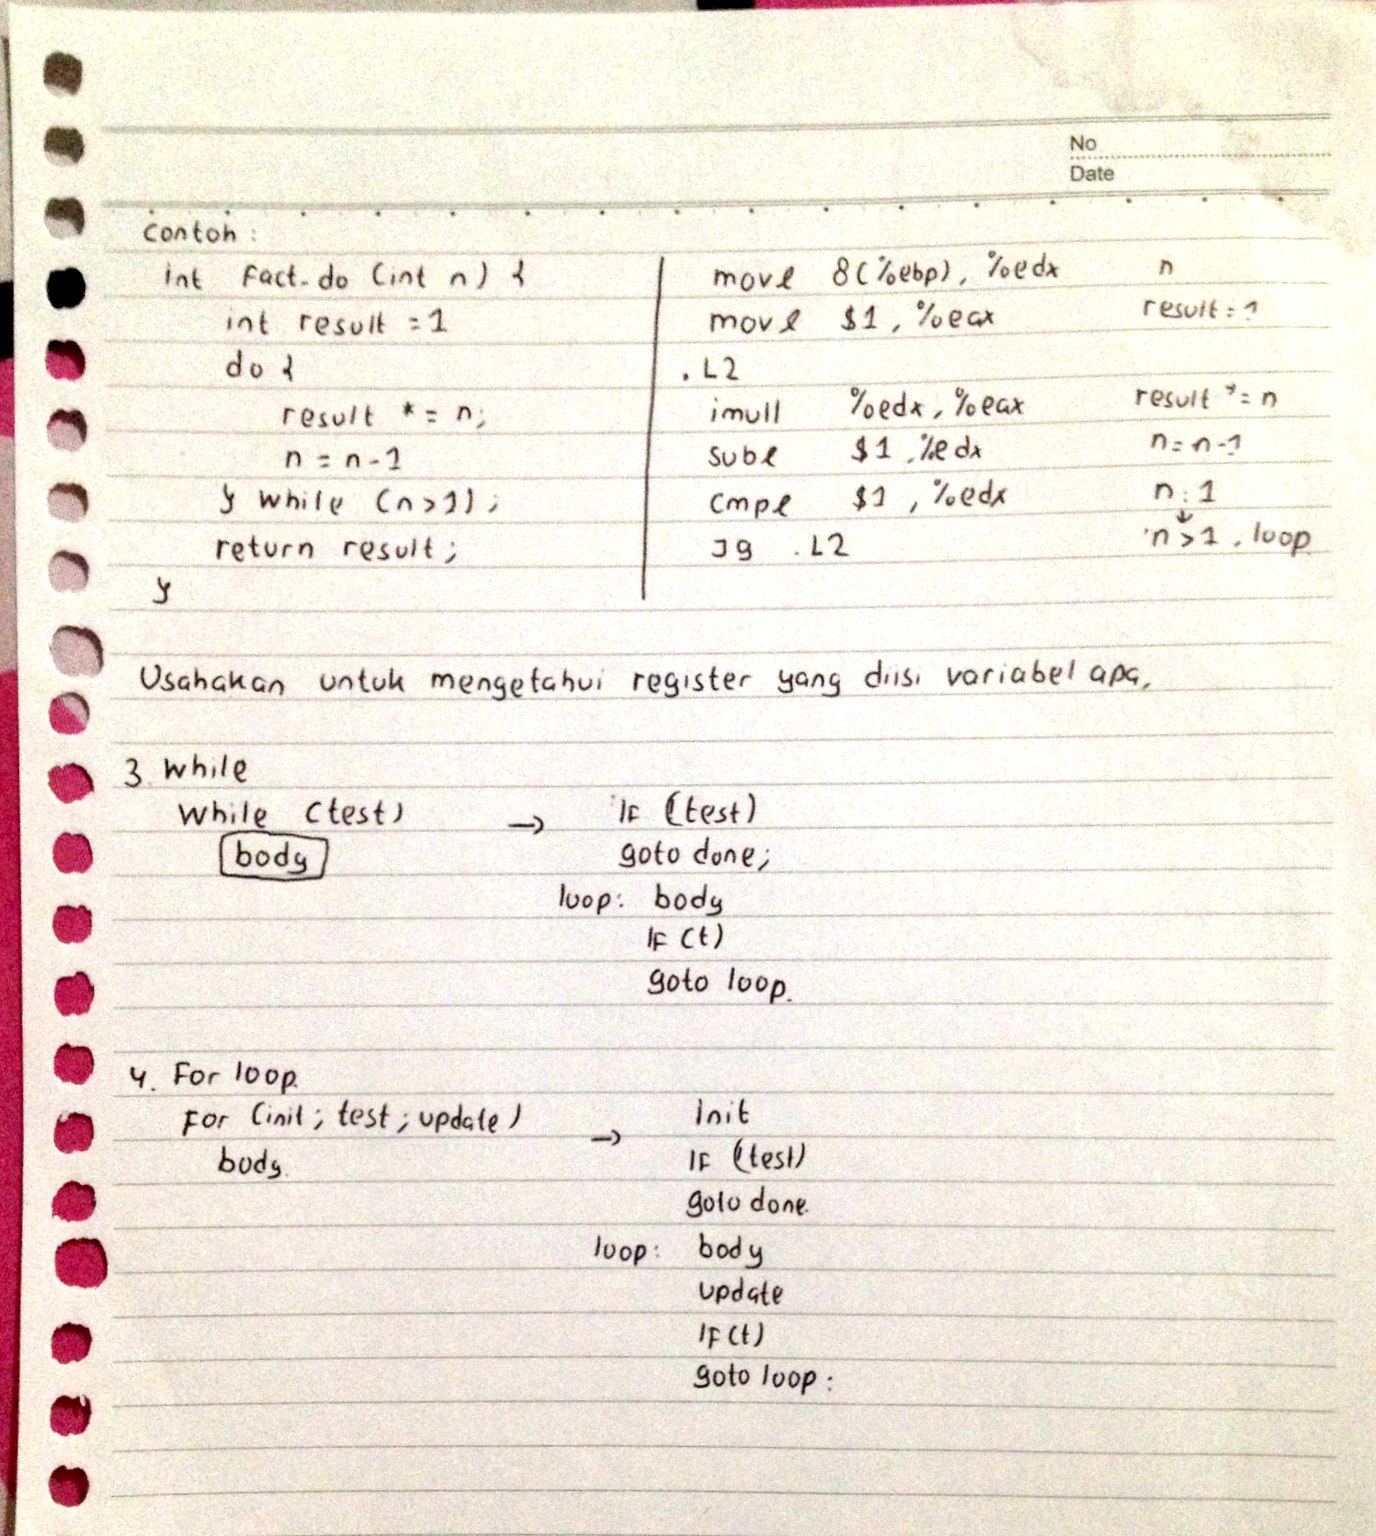 No
Date
Contoh :
int fact_do (int n) {
int result = 1
do {
result * = n;
n = n - 1
} while (n > 1);
return result;
}
movl 8(%ebp), %edx n
movl $1, %eax result = 1
.L2
imull %edx, %eax result *= n
subl $1, %edx n = n - 1
cmpl $1, %edx n : 1
jg .L2 n > 1, loop
Usahakan untuk mengetahui register yang diisi variabel apa.
3. While
While (test)
body
→
IF (test)
goto done;
loop: body
IF (t)
goto loop.
4. For loop
For (init ; test ; update)
body.
→
init
IF (test)
goto done.
loop: body
update
IF (t)
goto loop :